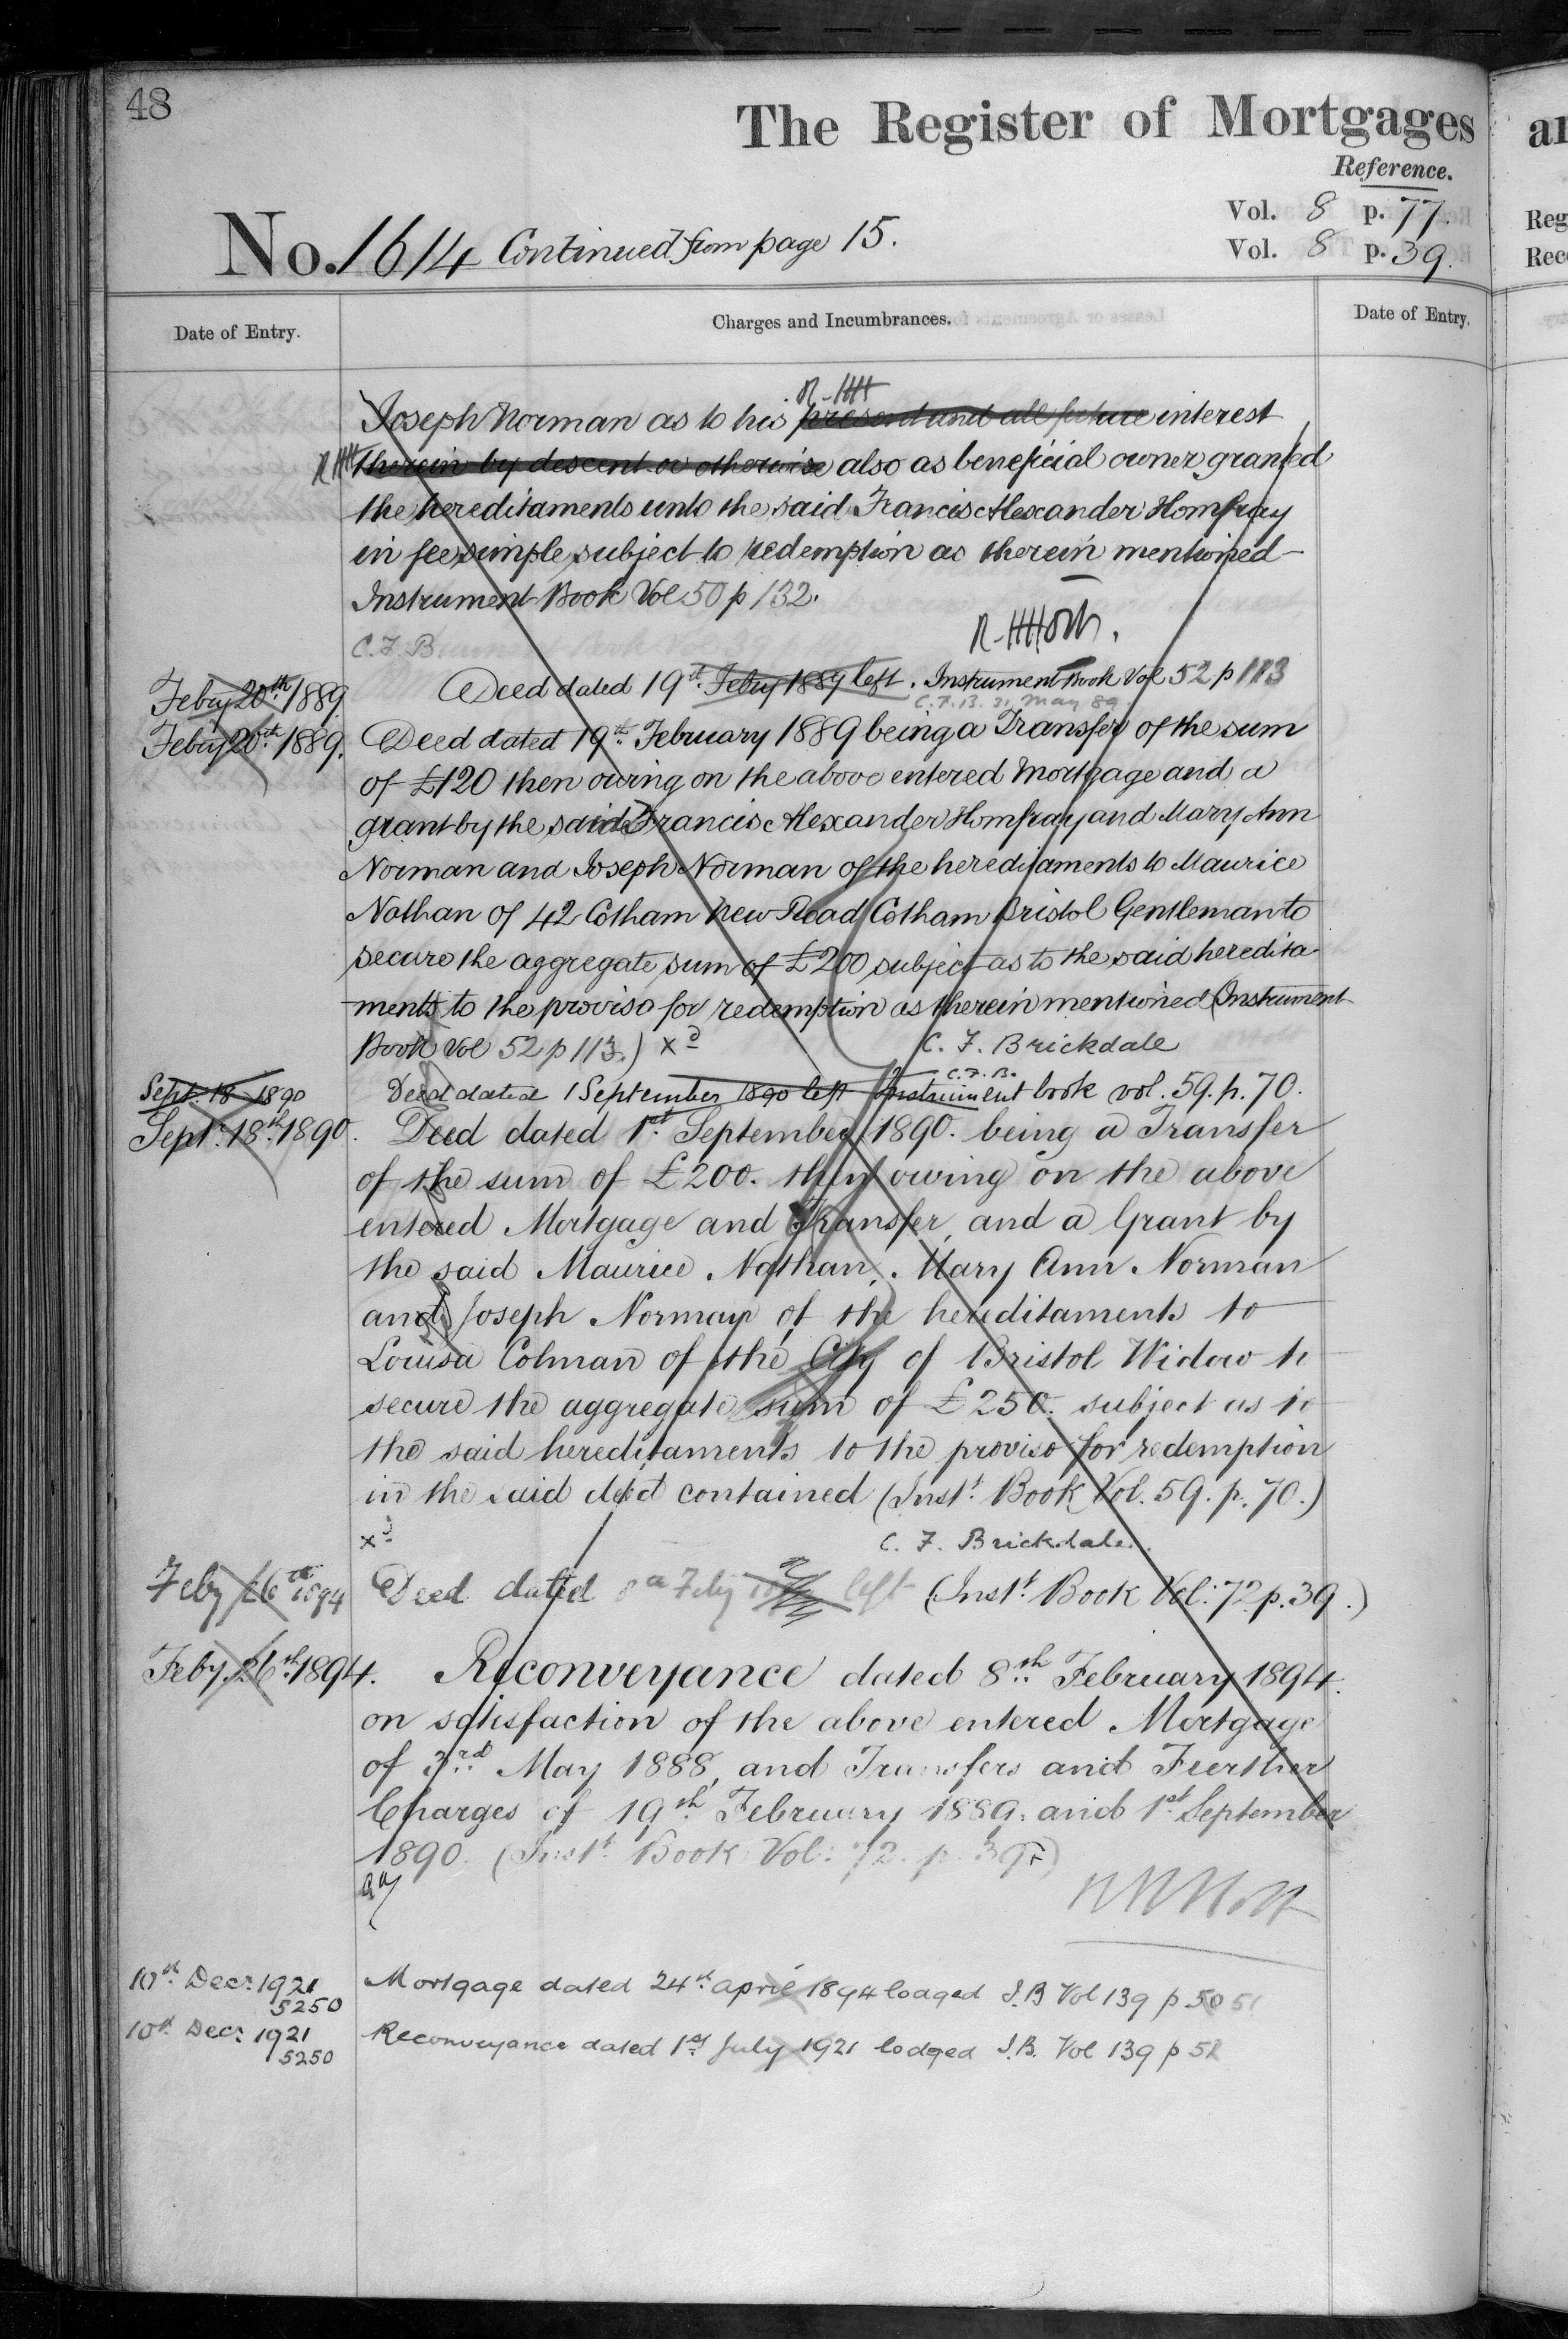 48
The Register of Mortgages
Reference.
Vol. 8 p. 77.
Vol. 8 p. 39.
No. 1614 Continued from page 15.
Date of Entry.
Charges and Incumbrances.
Date of Entry.
Joseph Norman as to his present and all future interest
therein by descent or otherwise also as beneficial owner granted
the hereditaments unto the said Francis Alexander Homfray
in fee simple subject to redemption as therein mentioned
Instrument Book Vol 50 p 132.
C. F. B.
Feby 20th 1889 Deed dated 19th Feby 1889 left. Instrument Book Vol 52 p 113
C.F.B. 31 May 89
Feby 20th 1889. Deed dated 19th February 1889 being a Transfer of the sum
of £120 then owing on the above entered Mortgage and a
grant by the said Francis Alexander Homfray and Mary Ann
Norman and Joseph Norman of the hereditaments to Maurice
Nathan of 42 Cotham New Road Cotham Bristol Gentleman to
secure the aggregate sum of £200 subject as to the said heredita-
ments to the proviso for redemption as therein mentioned (Instrument
Book Vol 52 p 113.) xd C. F. Brickdale
C.F.B.
Sept. 18 1890 Deed dated 1 September 1890 left Instrument book vol. 59. p. 70.
Sept. 18th 1890. Deed dated 1st September 1890. being a Transfer
of the sum of £200. then owing on the above
entered Mortgage and Transfer, and a Grant by
the said Maurice Nathan, Mary Ann Norman
and Joseph Norman of the hereditaments to
Louisa Colman of the City of Bristol Widow to
secure the aggregate sum of £250. subject as to
the said hereditaments to the proviso for redemption
in the said deed contained (Inst. Book Vol. 59. p. 70.)
xd C. F. Brickdale.
Feby 26th 1894 Deed dated 8th Feby left (Inst. Book Vol: 72 p. 39.)
Feby. 26th 1894. Reconveyance dated 8th February 1894.
on satisfaction of the above entered Mortgage
of 3rd May 1888, and Transfers and Further
Charges of 19th February 1889. and 1st September
1890. (Inst. Book Vol: 72. p. 39.)
10th Decr. 1921 Mortgage dated 24th april 1894 lodged I.B Vol 139 p 50 51
5250
10th Decr. 1921 Reconveyance dated 1st July 1921 lodged I.B. Vol 139 p 52
5250
Reg